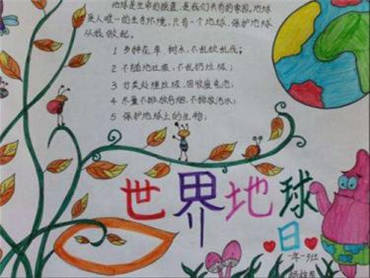 地球是生命的摇篮,是我们共有的家园,地球
是人唯一的生存环境,只有一个地球,保护地球
从我做起。
1 多种花、草、树木,不乱砍乱伐;
2 不随地吐痰、不乱扔垃圾;
3 分类处理垃圾,回收废电池;
4 尽量不排放
5 保护地球上的生物;
世界地球
日
一年一班